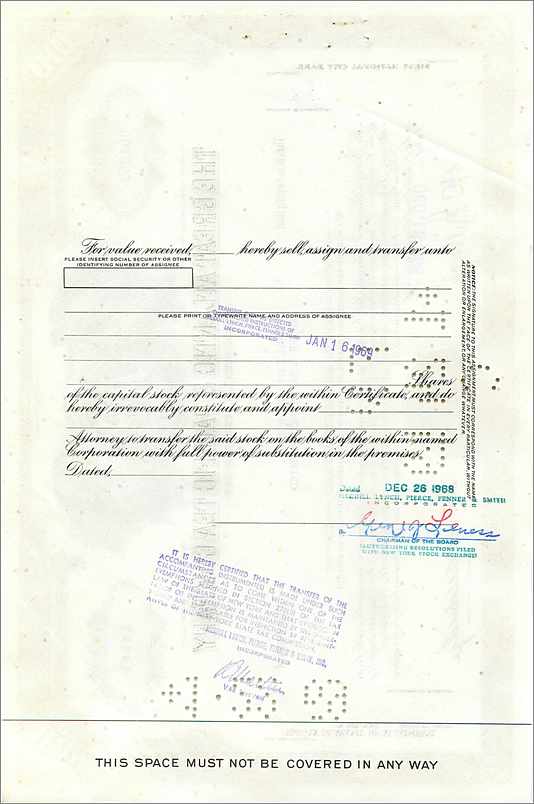 For value received, hereby sell, assign and transfer unto
PLEASE INSERT SOCIAL SECURITY OR OTHER
IDENTIFYING NUMBER OF ASSIGNEE
PLEASE PRINT OR TYPEWRITE NAME AND ADDRESS OF ASSIGNEE
INSTRUCTIONS OF
INCORPORATED
JAN 16 1969
Shares
of the capital stock represented by the within Certificate, and do
hereby irrevocably constitute and appoint
Attorney to transfer the said stock on the books of the within named
Corporation with full power of substitution in the premises.
Dated,
NOTICE: THE SIGNATURE TO THIS ASSIGNMENT MUST CORRESPOND WITH THE NAME
AS WRITTEN UPON THE FACE OF THE CERTIFICATE IN EVERY PARTICULAR, WITHOUT
ALTERATION OR ENLARGEMENT OR ANY CHANGE WHATEVER.
Dated DEC 26 1968
MERRILL LYNCH, PIERCE, FENNER & SMITH
INCORPORATED
CHAIRMAN OF THE BOARD
AUTHORIZING RESOLUTIONS FILED
WITH NEW YORK STOCK EXCHANGE
IT IS HEREBY CERTIFIED THAT THE TRANSFER OF THE
ACCOMPANYING INSTRUMENT IS MADE UNDER SUCH
CIRCUMSTANCES AS TO COME WITHIN ONE OF THE
MERRILL LYNCH, PIERCE, FENNER & SMITH, INC.
INCORPORATED
THIS SPACE MUST NOT BE COVERED IN ANY WAY